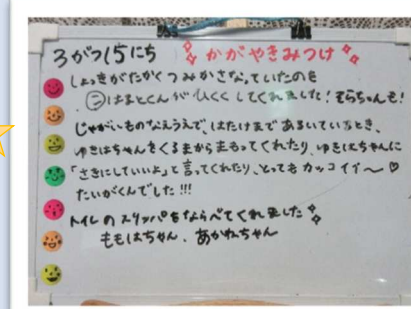 3がつ15にち かがやきみつけ
しょっきがたかくつみかさなっていたのを
はまとくんがひくくしてくれました!そらちゃんも!
じゃがいものなえうえで、はたけまであるいているとき、
ゆきはちゃんをくるまからまもってくれたり、ゆきはちゃんに
「さきにしていいよ」と言ってくれたり、とってもカッコイイ〜♡
たいがくんでした!!!
トイレのスリッパをならべてくれました
ももはちゃん、あかねちゃん